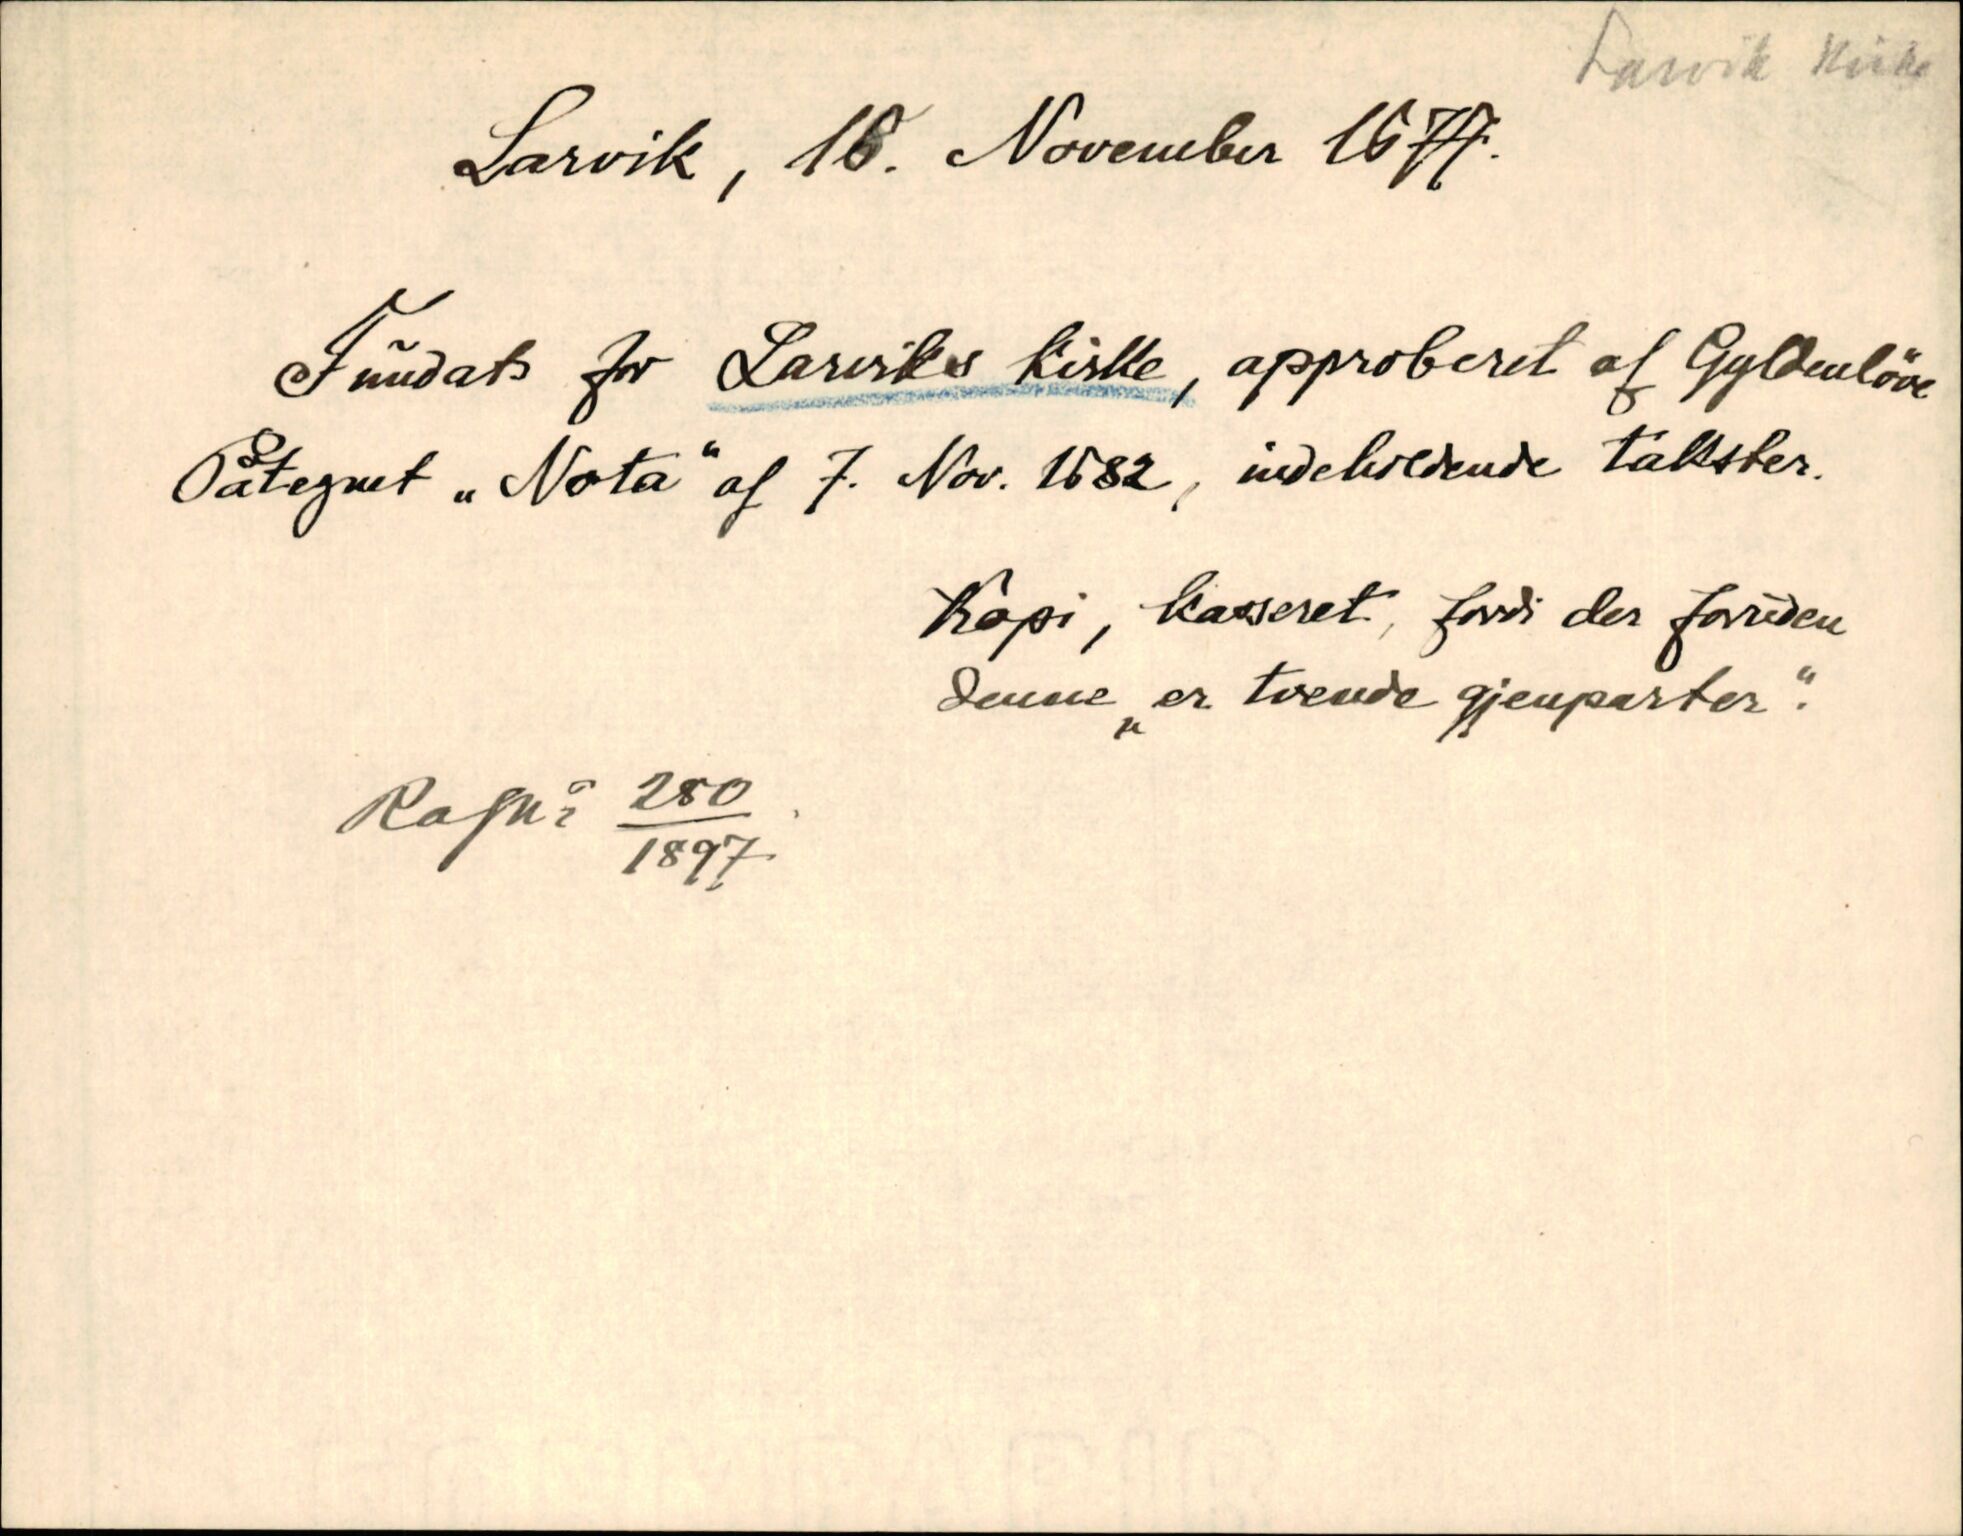 Larvik Kirke
Larvik, 16. November 1677.
Fundats for Larviks kirke, approberet af Gyldenlöve
Påtegnet „Nota“ af 7. Nov. 1682, indeholdende takster.
Kopi, kasseret, fordi der foruden
denne „er tvende gjenparter“.
280
1897